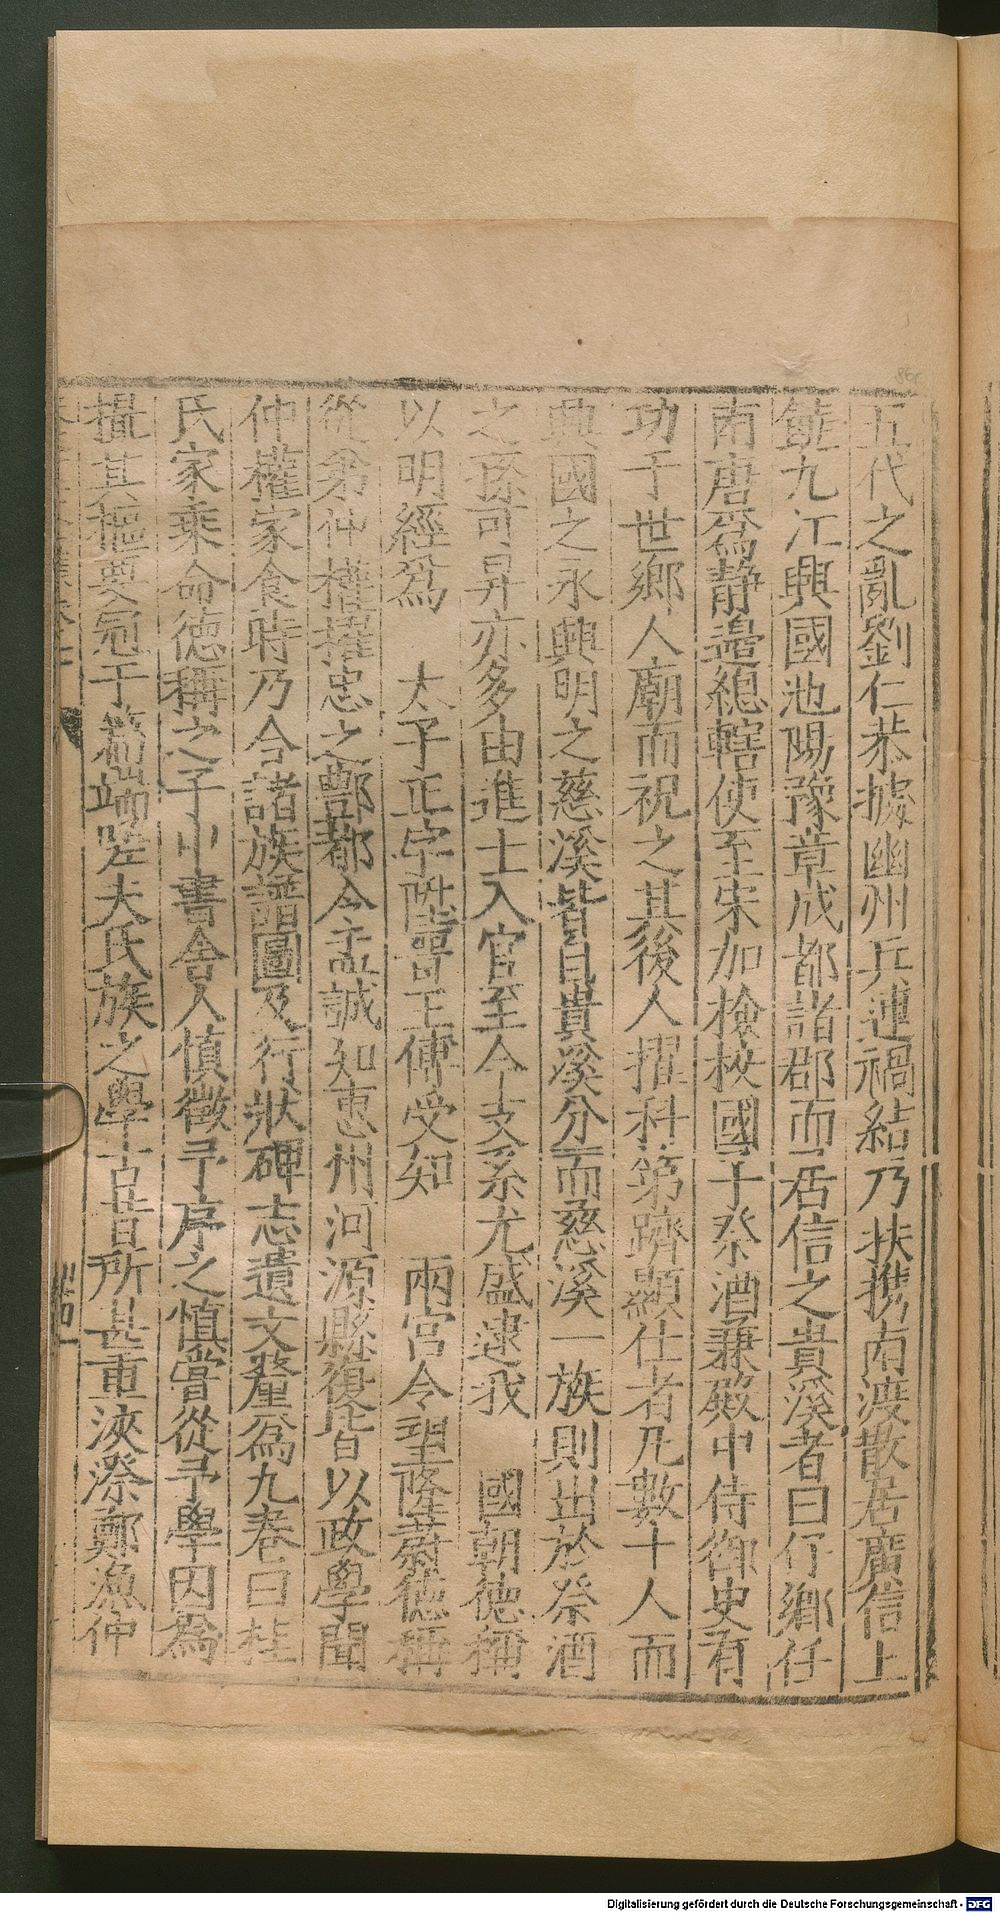 五代之亂劉仁恭據幽州兵連禍結乃扶携南渡散居廣信上
饒九江興國池陽豫章成都諸郡而居信之貴溪者曰仃鄉任
南唐爲靜邉總轄使至宋加檢校國子祭酒兼殿中侍御史有
功于世鄉人廟而祝之其後人擢科第躋顯仕者凡數十人而
興國之永興明之慈溪皆自貴溪分而慈溪一族則出於祭酒
之孫可昇亦多由進士入官至今支系尤盛逮我 國朝德稱
以明經爲 太子正字陞晉王傅受知 兩宮令望隆蔚德稱
從弟仲權權忠之酆都令孟誠知惠州河源縣復皆以政學聞
仲權家食時乃合諸族譜圖及行狀碑志遺文釐爲九卷曰桂
氏家乘命德稱之子中書舍人慎徵予序之慎嘗從予學因爲
撮其樞要冠于篇端嗟夫氏族之學古昔所甚重浹漈鄭漁仲
Digitalisierung gefördert durch die Deutsche Forschungsgemeinschaft - DFG